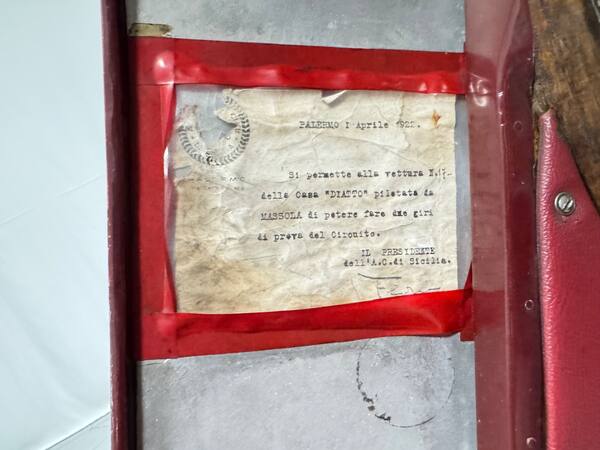 PALERMO I Aprile 1922.
Si permette alla vettura N.
della Casa "DIATTO" pilotata da
MASSOLA di potere fare due giri
di prova del Circuito.
IL PRESIDENTE
dell'A.C.di Sicilia.